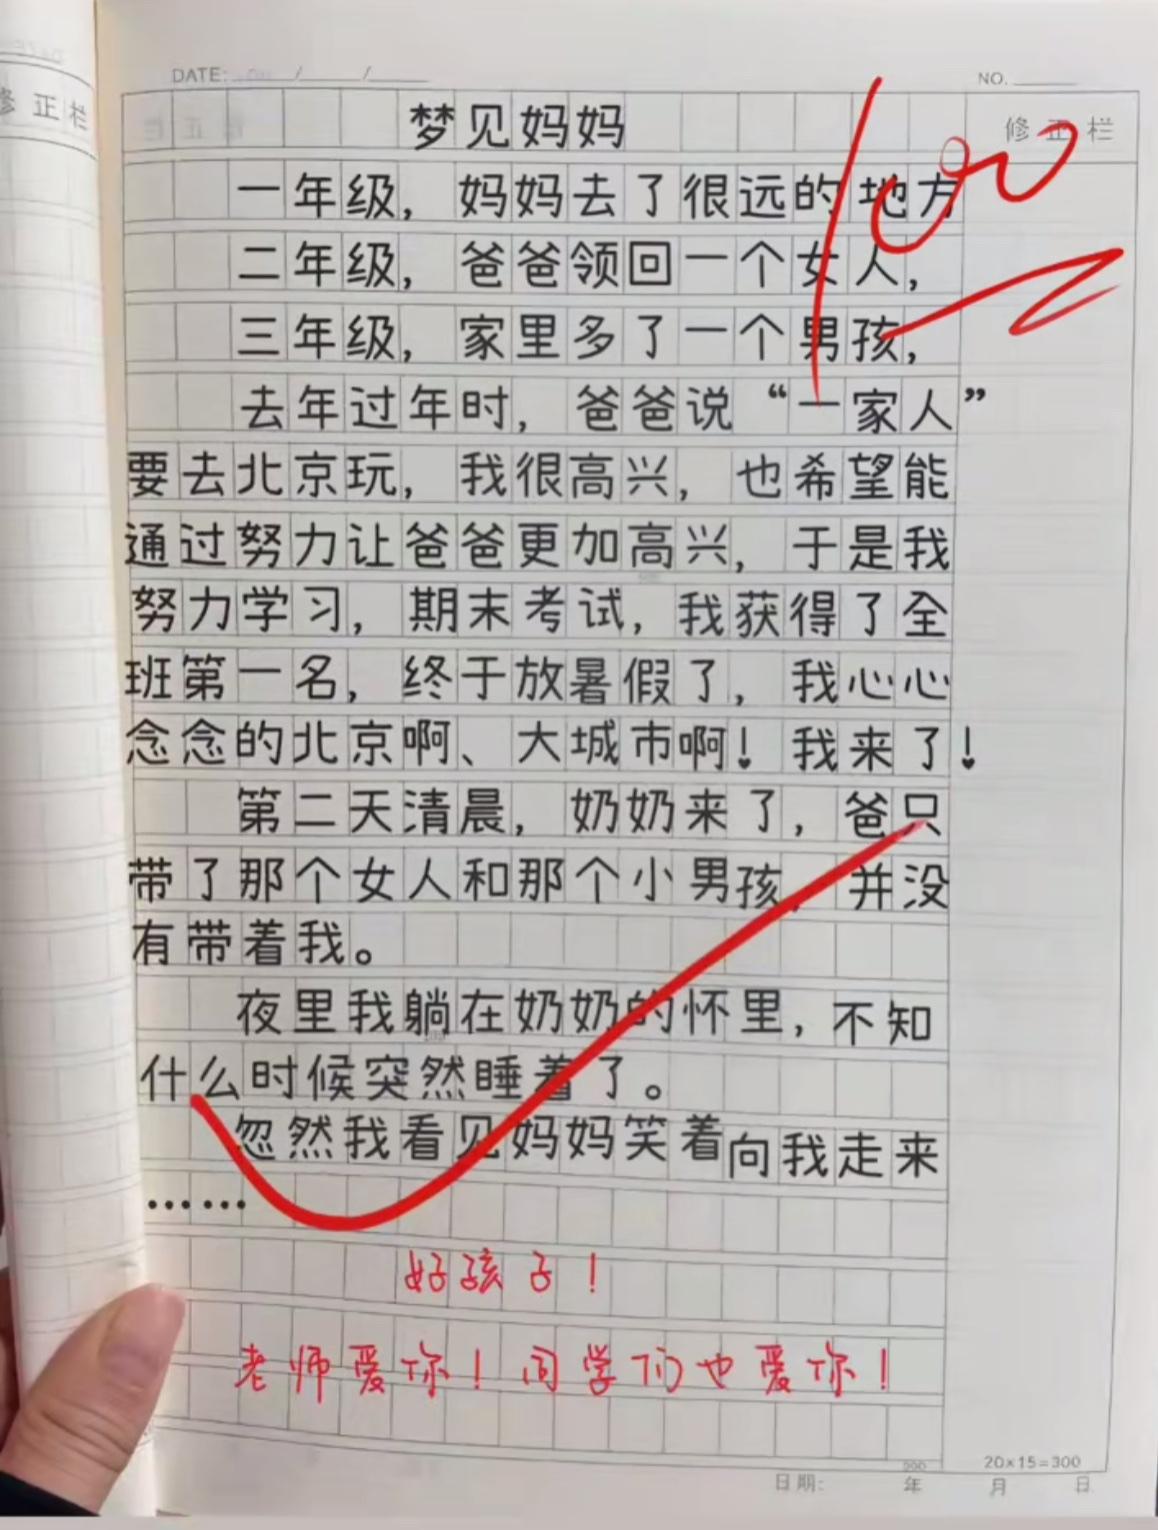 DATE: / /
NO.
修正栏
修正栏
梦见妈妈
一年级，妈妈去了很远的地方
二年级，爸爸领回一个女人，
三年级，家里多了一个男孩，
去年过年时，爸爸说“一家人”
要去北京玩，我很高兴，也希望能
通过努力让爸爸更加高兴，于是我
努力学习，期末考试，我获得了全
班第一名，终于放暑假了，我心心
念念的北京啊、大城市啊！我来了！
第二天清晨，奶奶来了，爸只
带了那个女人和那个小男孩，并没
有带着我。
夜里我躺在奶奶的怀里，不知
什么时候突然睡着了。
忽然我看见妈妈笑着向我走来
……
100
好孩子！
老师爱你！同学们也爱你！
20×15=300
日期: 年 月 日